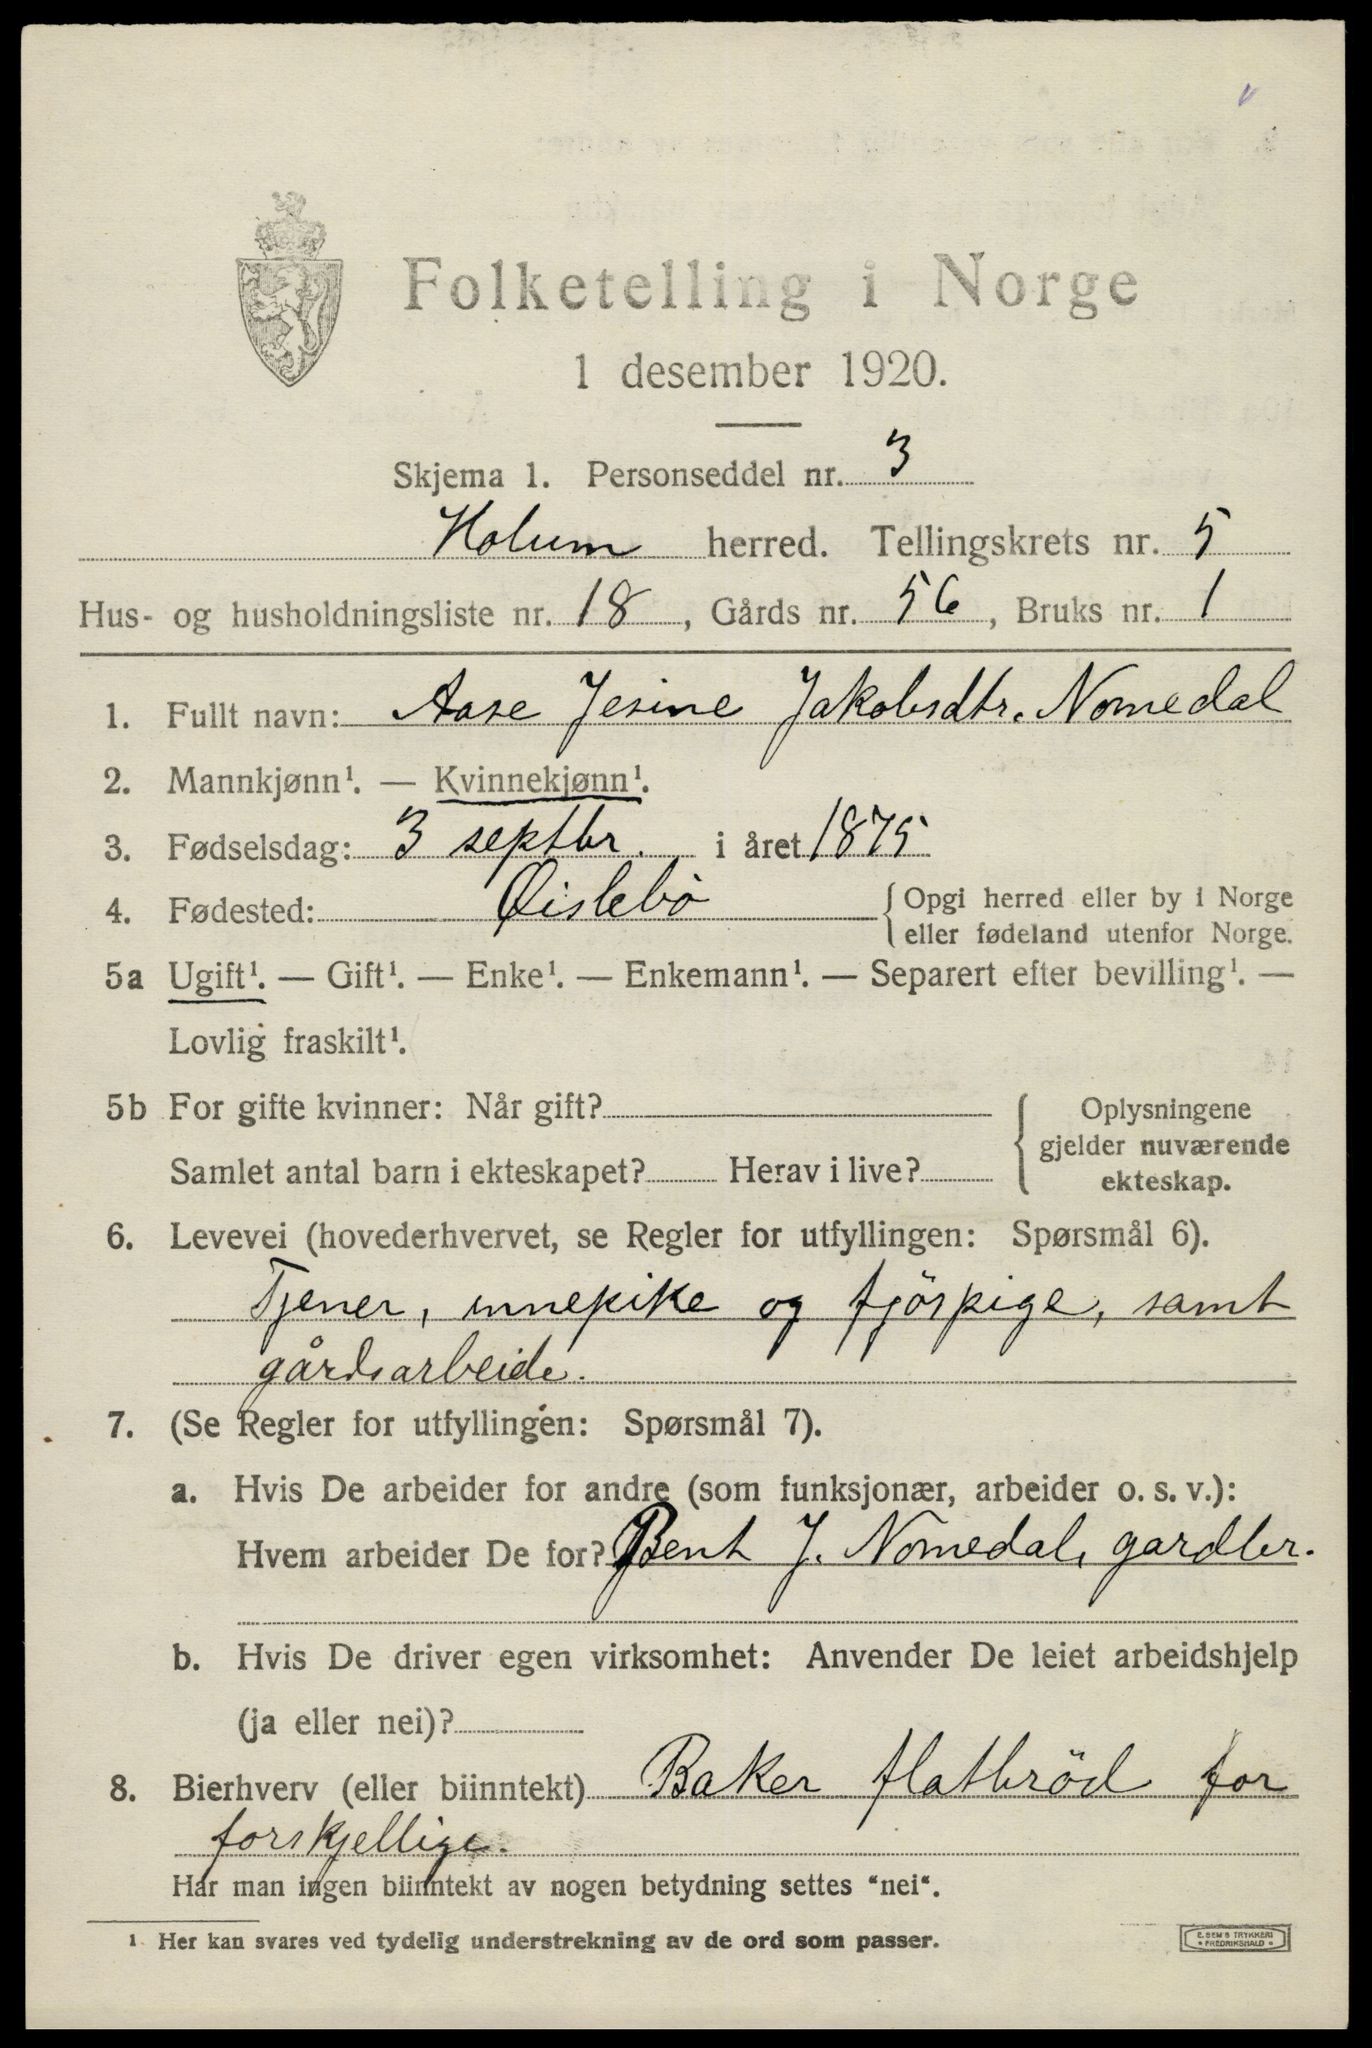 Folketelling i Norge
1 desember 1920.
Skjema 1. Personseddel nr. 3
Holum herred. Tellingskrets nr. 5
Hus- og husholdningsliste nr. 18, Gårds nr. 56, Bruks nr. 1
1. Fullt navn: Aase Jesine Jakobsdtr. Nomedal
2. Mannkjønn¹. — Kvinnekjønn¹.
3. Fødselsdag: 3 septbr. i året 1875
4. Fødested: Øislebö { Opgi herred eller by i Norge
eller fødeland utenfor Norge.
5a Ugift¹. — Gift¹. — Enke¹. — Enkemann¹. — Separert efter bevilling¹. —
Lovlig fraskilt¹.
5b For gifte kvinner: Når gift?
Samlet antal barn i ekteskapet? Herav i live?
{ Oplysningene
gjelder nuværende
ekteskap.
6. Levevei (hovederhvervet, se Regler for utfyllingen: Spørsmål 6).
Tjener, innepike og fjöspige, samt
gårdsarbeide.
7. (Se Regler for utfyllingen: Spørsmål 7).
a. Hvis De arbeider for andre (som funksjonær, arbeider o. s. v.):
Hvem arbeider De for? Bent J. Nomedal, gardbr.
b. Hvis De driver egen virksomhet: Anvender De leiet arbeidshjelp
(ja eller nei)?
8. Bierhverv (eller biinntekt) Baker flatbröd for
forskjellige.
Har man ingen biinntekt av nogen betydning settes "nei".
¹ Her kan svares ved tydelig understrekning av de ord som passer.
E. SEMS TRYKKERI
• FREDRIKSHALD •